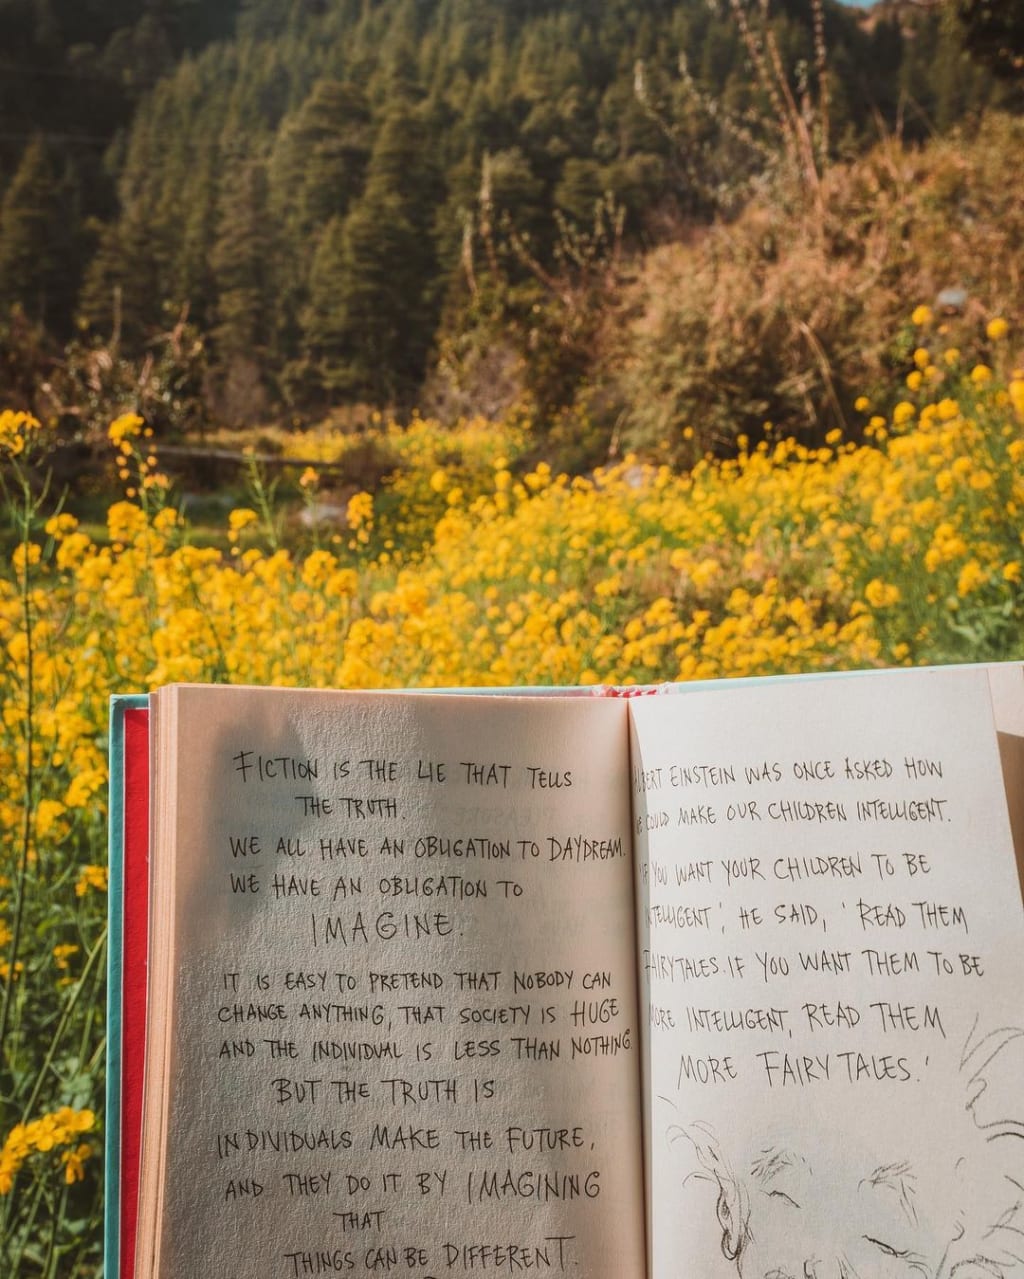 FICTION IS THE LIE THAT TELLS
THE TRUTH.
WE ALL HAVE AN OBLIGATION TO DAYDREAM.
WE HAVE AN OBLIGATION TO
IMAGINE.
IT IS EASY TO PRETEND THAT NOBODY CAN
CHANGE ANYTHING, THAT SOCIETY IS HUGE
AND THE INDIVIDUAL IS LESS THAN NOTHING.
BUT THE TRUTH IS
INDIVIDUALS MAKE THE FUTURE,
AND THEY DO IT BY IMAGINING
THAT
THINGS CAN BE DIFFERENT.
ALBERT EINSTEIN WAS ONCE ASKED HOW
WE COULD MAKE OUR CHILDREN INTELLIGENT.
'IF YOU WANT YOUR CHILDREN TO BE
INTELLIGENT', HE SAID, 'READ THEM
FAIRYTALES. IF YOU WANT THEM TO BE
MORE INTELLIGENT, READ THEM
MORE FAIRYTALES.'